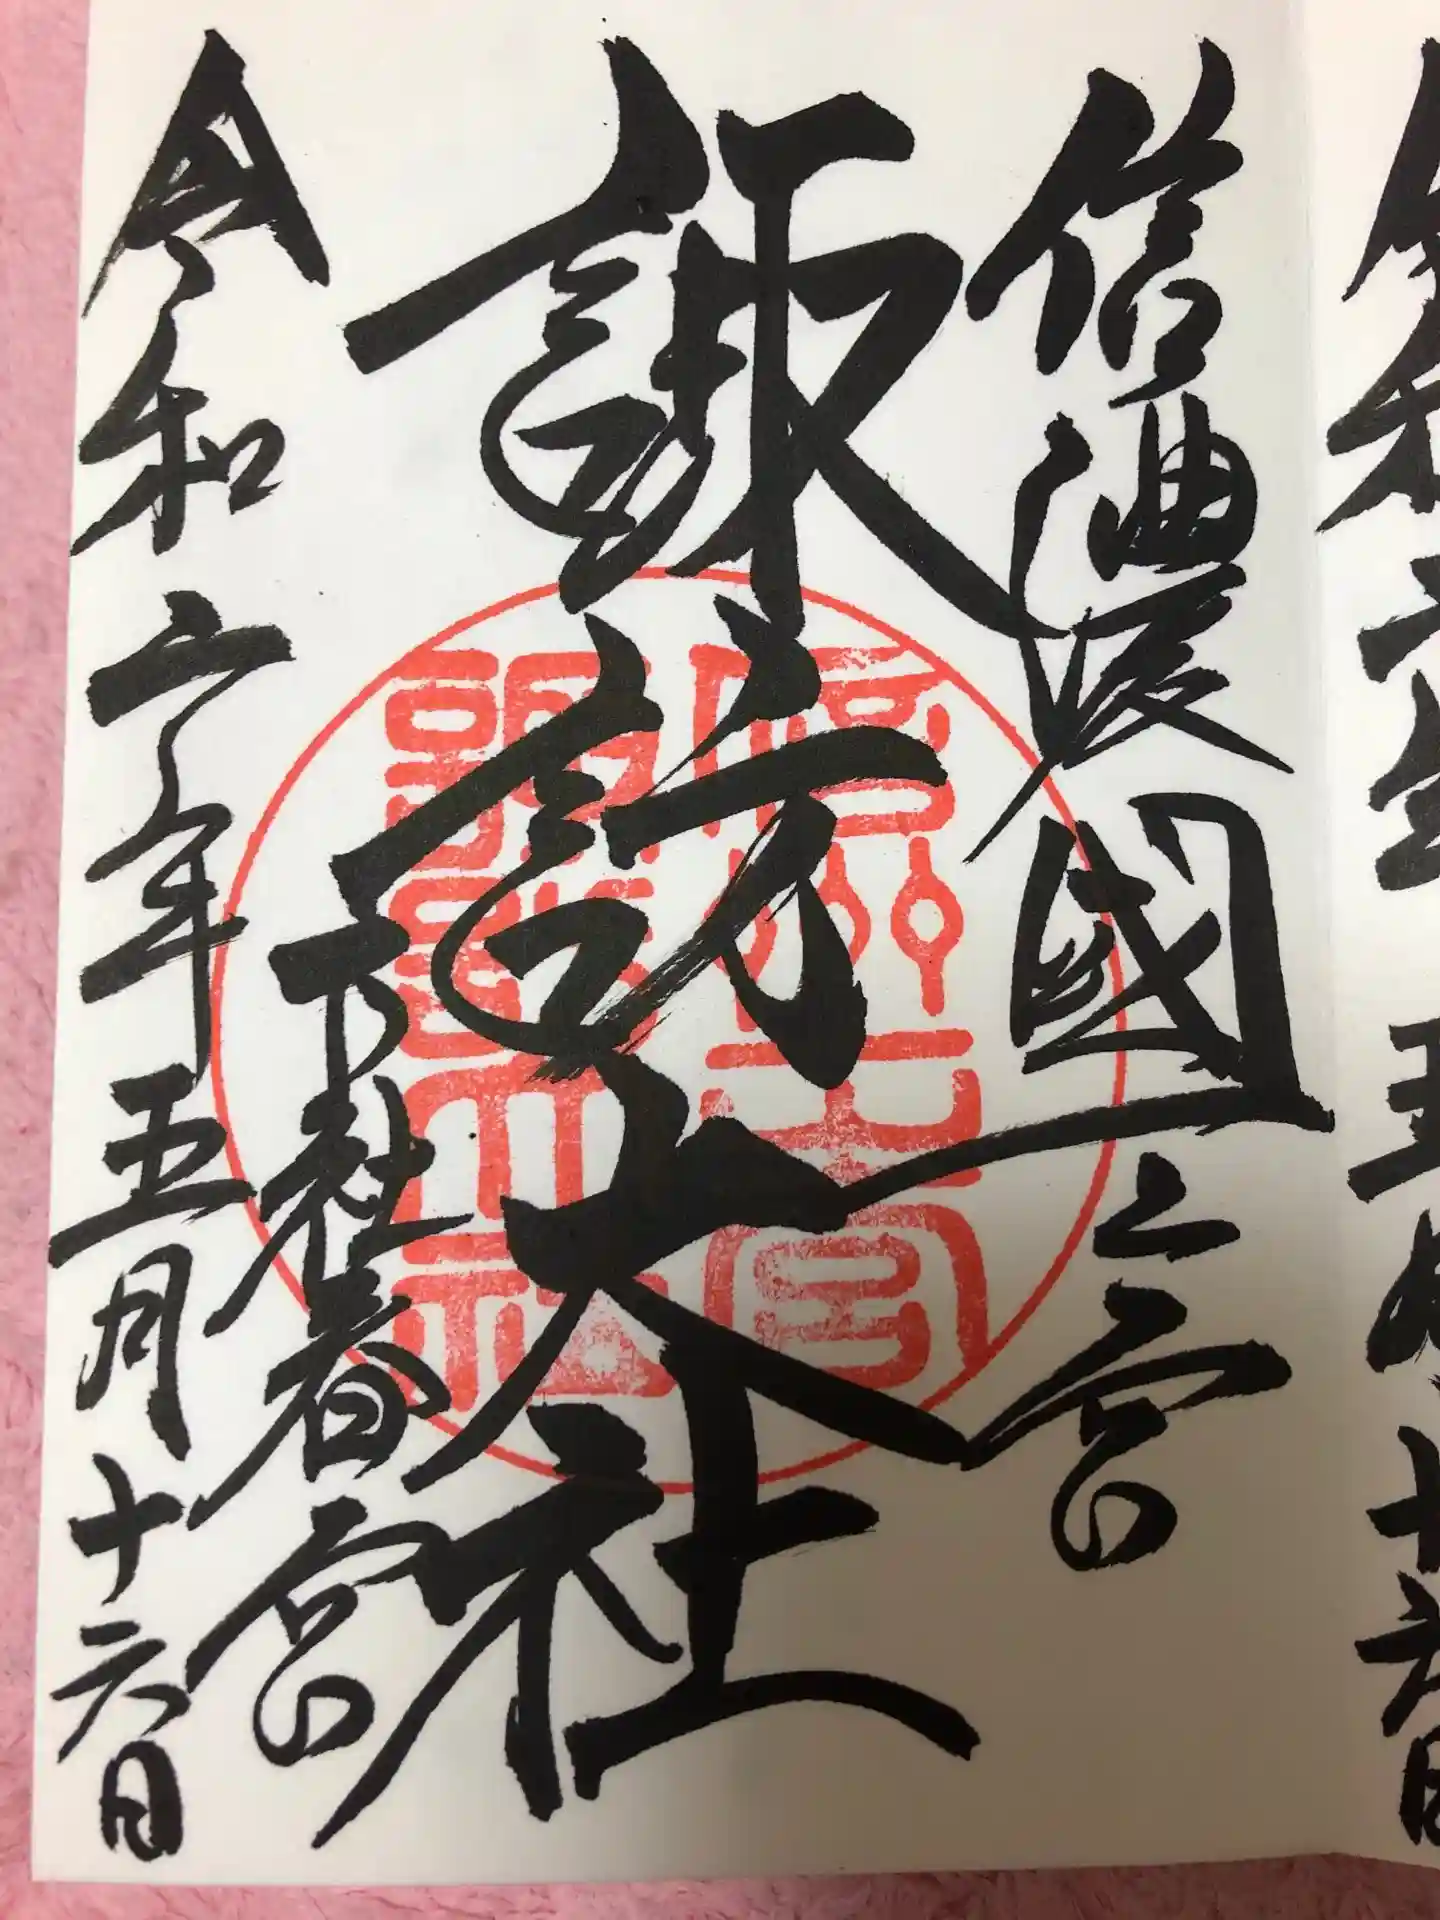 信濃國一之宮
諏訪大社
下社春宮
令和元年五月十六日
諏訪大社